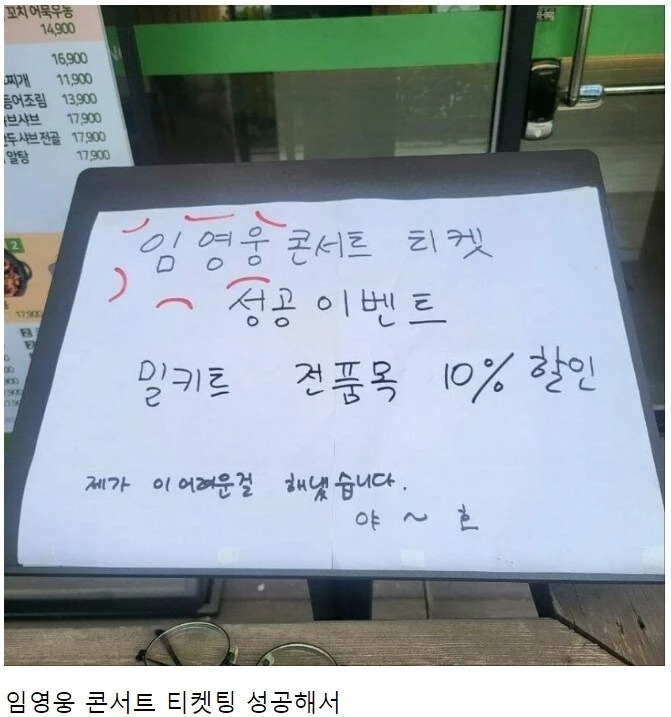 꼬치어묵우동
14,900
16,900
찌개 11,900
등어조림 13,900
브샤브 17,900
만두샤브전골 17,900
알탕 17,900
2
17,900
임영웅 콘서트 티켓
성공 이벤트
밀키트 전품목 10% 할인
제가 이 어려운걸 해냈습니다.
야 ~ 호
임영웅 콘서트 티켓팅 성공해서